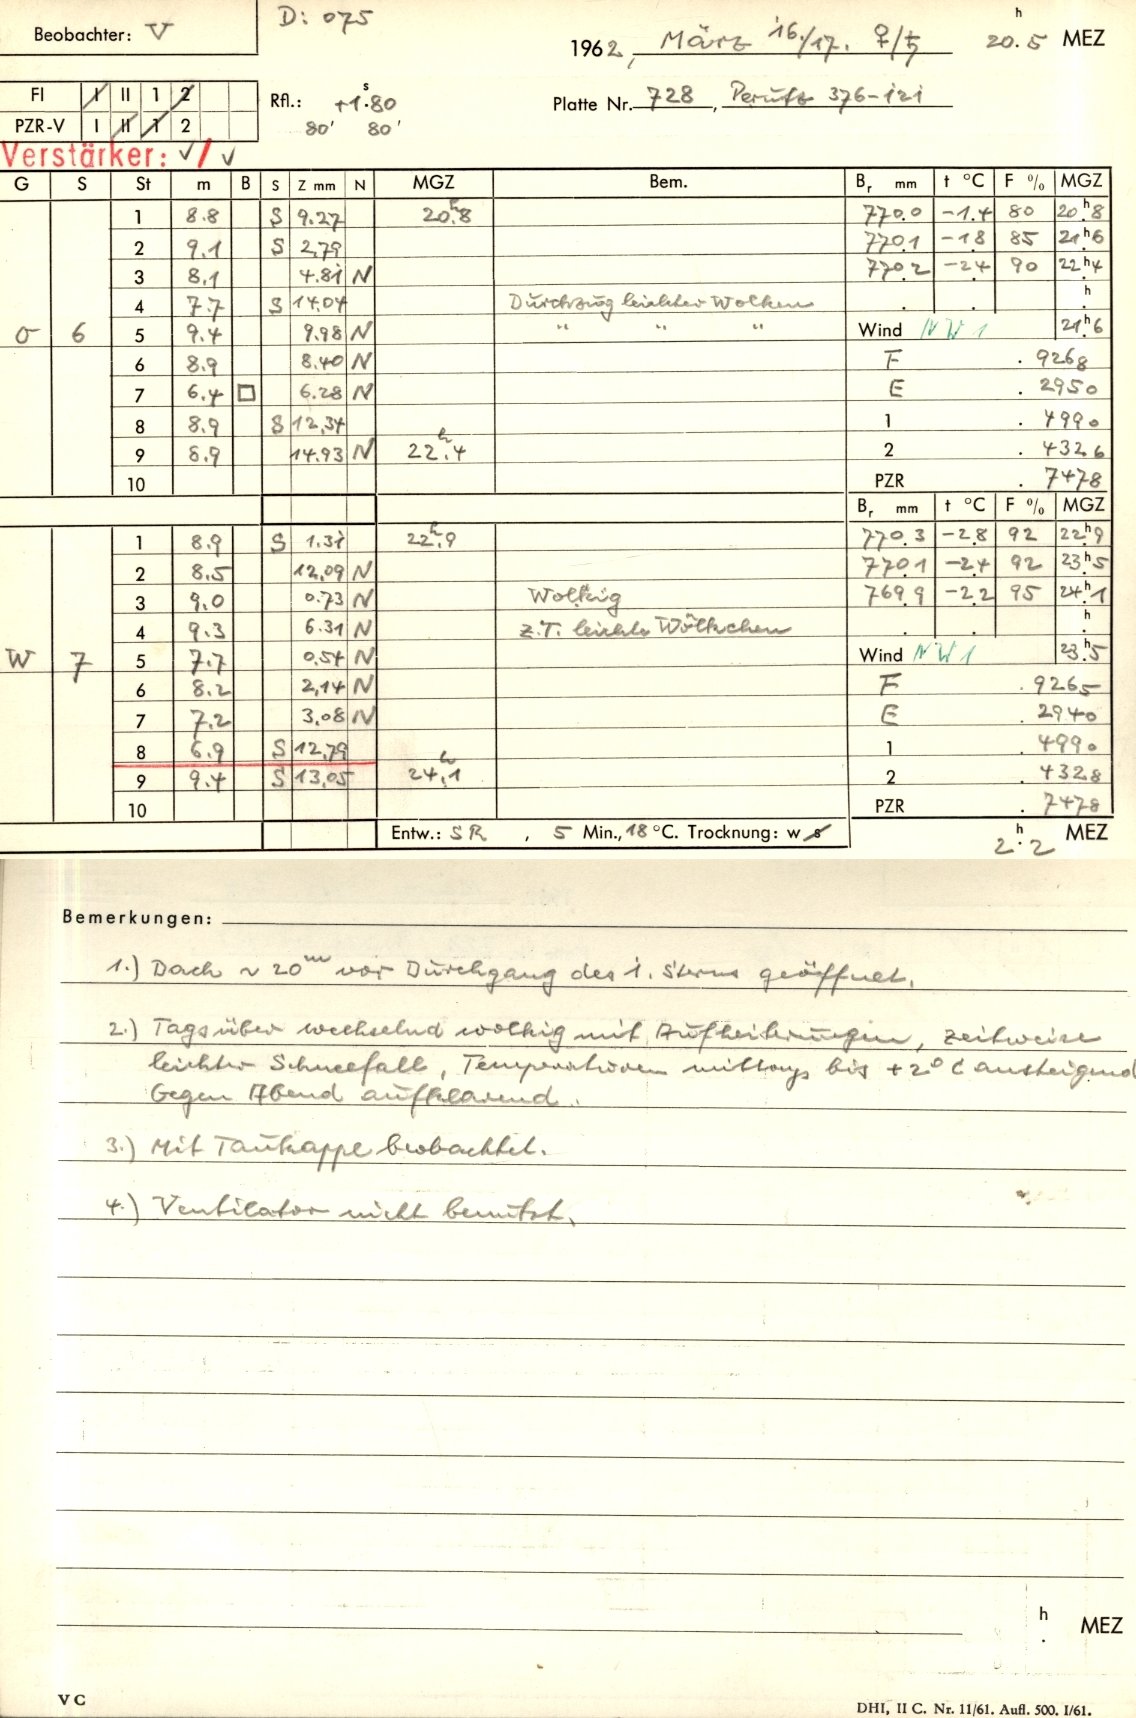 Beobachter: V
D: 075
1962, März 16./17. ♀/♄ 20.5 h MEZ
FI I II 1 2
PZR-V I II 1 2
Rfl.: +1.80 s
80' 80'
Platte Nr. 728, Perutz 376-121
Verstärker: √/√
G S St m B S Z mm N MGZ Bem. Br mm t °C F % MGZ
1 8.8 S 9.27 20.h8 770.0 -1.4 80 20.h8
2 9.1 S 2,79 770.1 -1.8 85 21.h6
3 8,1 4.81 N 770.2 -2.4 90 22.h4
4 7.7 S 14.04 Durchzug leichter Wolken . . h
O 6 5 9.4 9.98 N " " " Wind NW 1 21.h6
6 8.9 8.40 N F . 9268
7 6.4 □ 6.28 N E . 2950
8 8.9 S 12,34 1 . 4990
9 8.9 14.93 N 22.h4 2 . 4326
10 PZR . 7478
Br mm t °C F % MGZ
1 8.9 S 1.31 22.h9 770.3 -2.8 92 22.h9
2 8.5 12,09 N 770.1 -2.4 92 23.h5
3 9.0 0.73 N Wolkig 769.9 -2.2 95 24.h1
4 9.3 6.31 N z.T. leichte Wölkchen . . h
W 7 5 7.7 0.54 N Wind NW 1 23.h5
6 8.2 2,14 N F . 9265
7 7.2 3,08 N E . 2940
8 6.9 S 12,79 1 . 4990
9 9.4 S 13,05 24.h1 2 . 4328
10 PZR . 7478
Entw.: SR , 5 Min., 18 °C. Trocknung: w s
2.h2 MEZ
Bemerkungen:
1.) Dach ~ 20m vor Durchgang des 1. Sterns geöffnet.
2.) Tagsüber wechselnd wolkig mit Aufheiterungen, zeitweise
leichter Schneefall, Temperaturen mittags bis +2° C ansteigend
Gegen Abend aufklarend.
3.) Mit Taukappe beobachtet.
4.) Ventilator nicht benutzt.
h
. MEZ
V C
DHI, II C. Nr. 11/61. Aufl. 500. I/61.